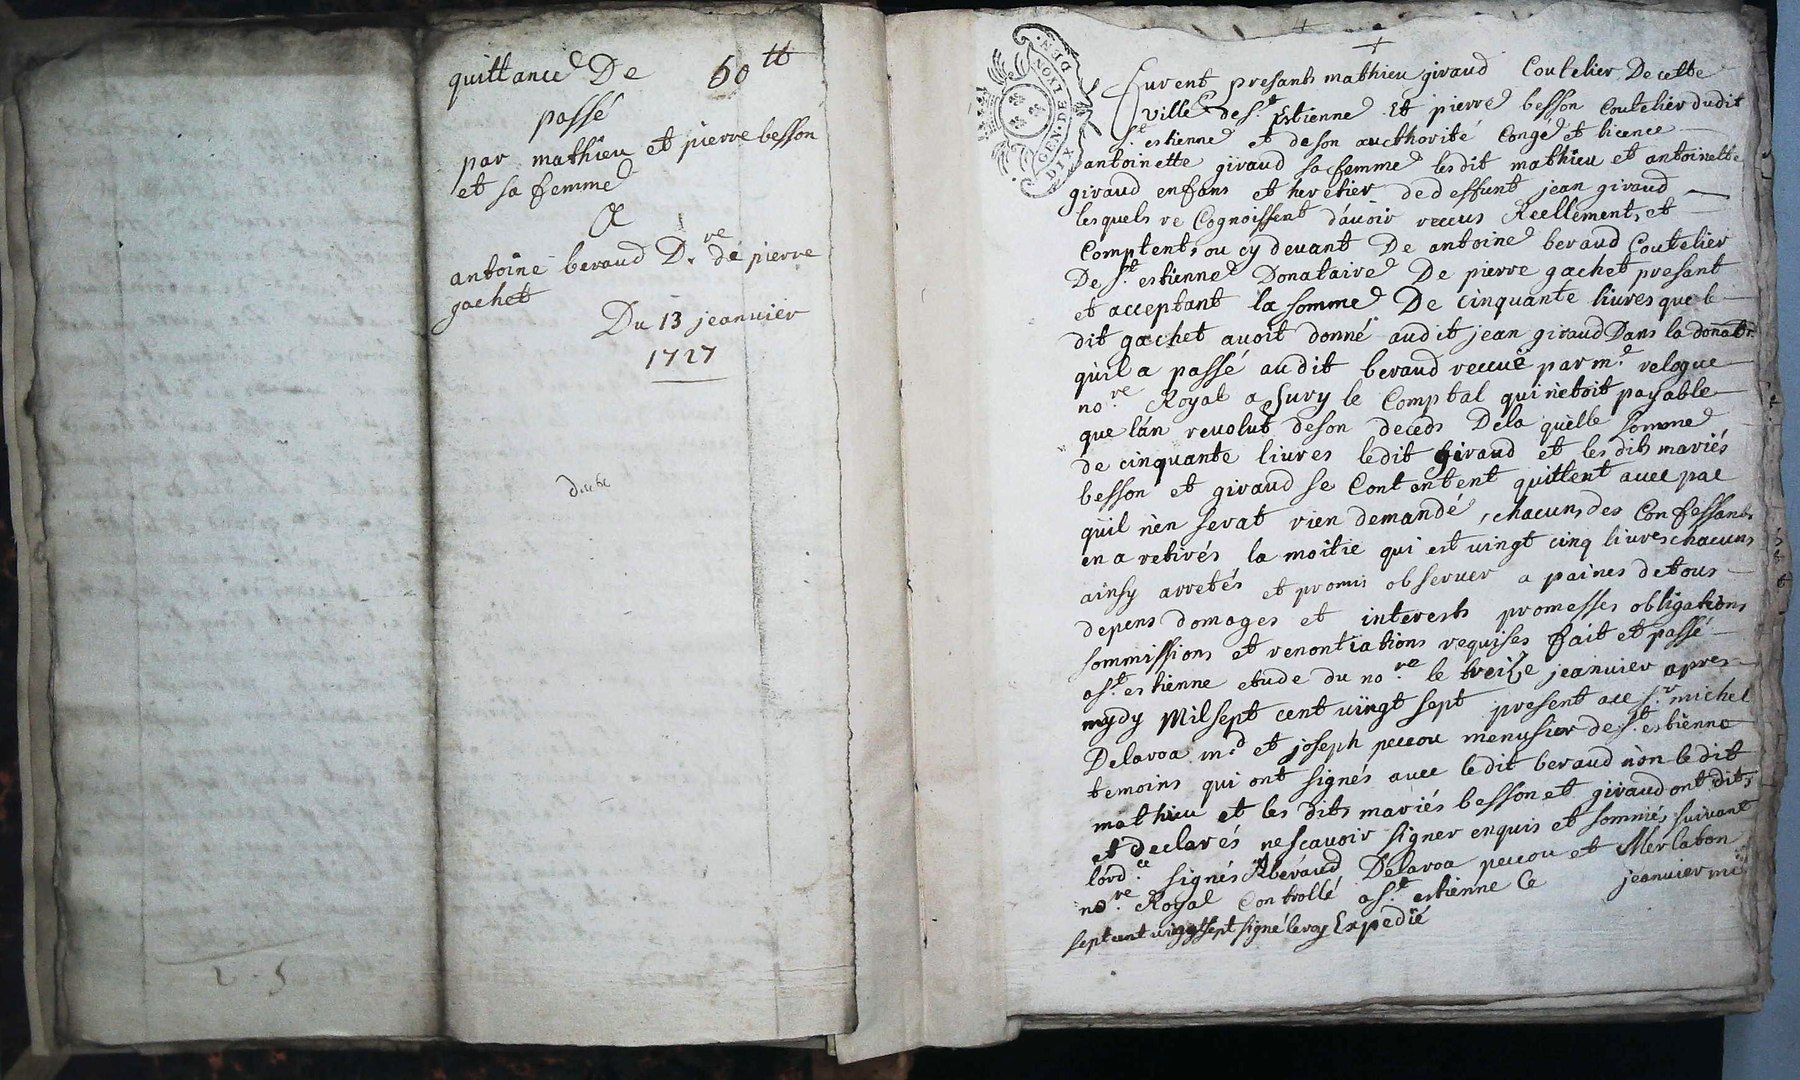 quittance De 50 tt
passé
par mathieu et pierre besson
et sa femme
A
antoine beraud D.re de pierre
gachet
Du 13 jeanuier
1727
2 - 5
GEN · DE LYON
DIX DEN
furent presants mathieu giraud Coutelier De cette
ville de st. estienne Et pierre besson Coutelier dudit
st. estienne et de son aucthorité Congé et licence
antoinette giraud sa femme lesdit mathieu et antoinette
giraud enfans et heretier de deffunt jean giraud
lesquels re Cognoissent d'auoir receus Reellement, et
Comptent, ou cy deuant De antoine beraud Coutelier
De st. estienne Donataire De pierre gachet presant
et acceptant la somme De cinquante liures que le
dit gachet auoit donné audit jean giraud Dans la donat.
qu'il a passé audit beraud receuë par m.e relogue
no.re Royal a Sury le Comptal qui n'etoit payable
que l'an reuolut de son deceds De la quelle somme
de cinquante liures ledit giraud et les dits mariés
besson et giraud se Contentent quittent auec pac
qu'il n'en serat rien demandé, chacuns des Confessants
en a retirés la moitie qui est uingt cinq liures chacuns
ainsy arretés et promis obseruer a paines de tous
depens domages et interests promesses obligations
sommissions et renontiations requises fait et passé
a st. estienne etude du no.re le treize jeanuier apres
mydy Mil sept cent uingt sept present ace s.r michel
Delaroa m.d et joseph peccou menusier de st. estienne
temoins qui ont signés auec ledit beraud non le dit
mathieu et les dits mariés besson et giraud ont dits
et declarés ne scauoir signer enquis et sommiés suiuant
l'ord.ce signés A beraud Delaroa peccou et Merlaton
no.re Royal Controllé a st. estienne Ce jeanuier mil
sept cent uingt sept signé leroy Expédié